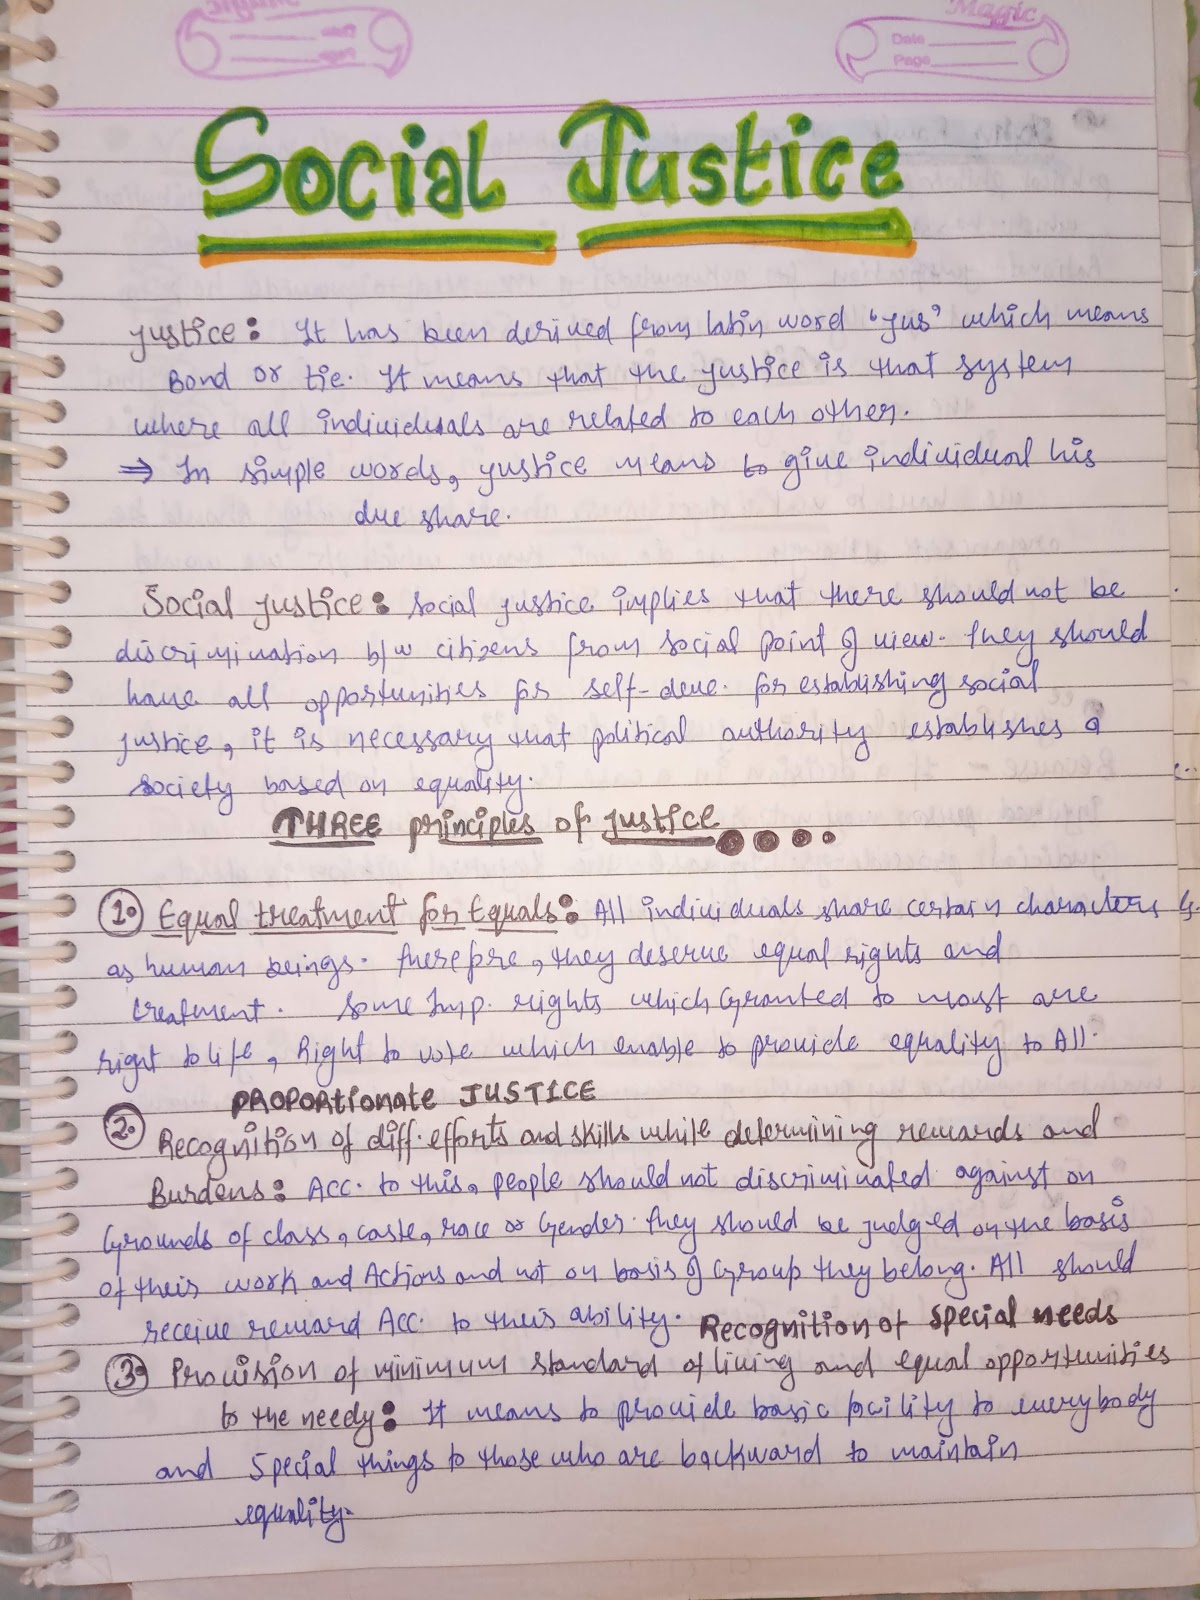 Magic
Date
Page
Social Justice
Justice: It has been derived from latin word "jus" which means
Bond or tie. It means that the justice is that system
where all individuals are related to each other.
⇒ In simple words, justice means to give individual his
due share.
Social justice: Social justice implies that there should not be
discrimination b/w citizens from social point of view. They should
have all opportunities for self-deve. for establishing social
justice, it is necessary that political authority establishes a
society based on equality.
THREE principles of justice
1. Equal treatment for Equals: All individuals share certain characters
as human beings. Therefore, they deserve equal rights and
treatment. Some Imp. rights which Granted to most are
right to life, Right to vote which enable to provide equality to All.
PROPORtionate JUSTICE
2. Recognition of diff. efforts and skills while determining rewards and
Burdens: Acc. to this, people should not discriminated against on
Grounds of class, caste, race or Gender. They should be judged on the basis
of their work and Actions and not on basis of Group they belong. All should
receive reward Acc. to their ability. Recognition of special needs
3. Provision of minimum standard of living and equal opportunities
to the needy: It means to provide basic facility to everybody
and Special things to those who are backward to maintain
equality.